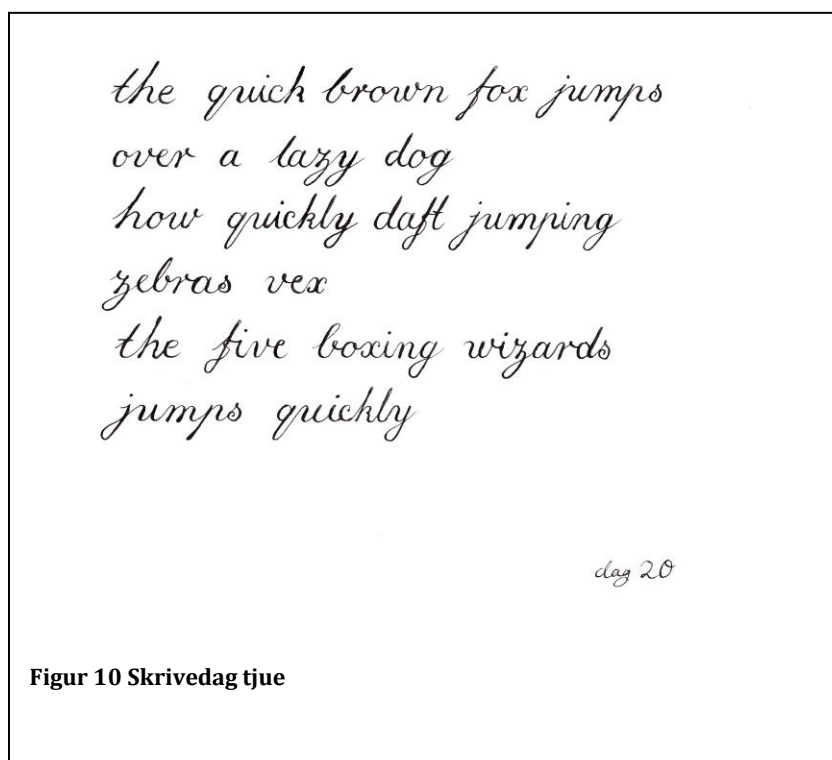 the quick brown fox jumps
over a lazy dog
how quickly daft jumping
zebras vex
the five boxing wizards
jumps quickly
dag 20
Figur 10 Skrivedag tjue